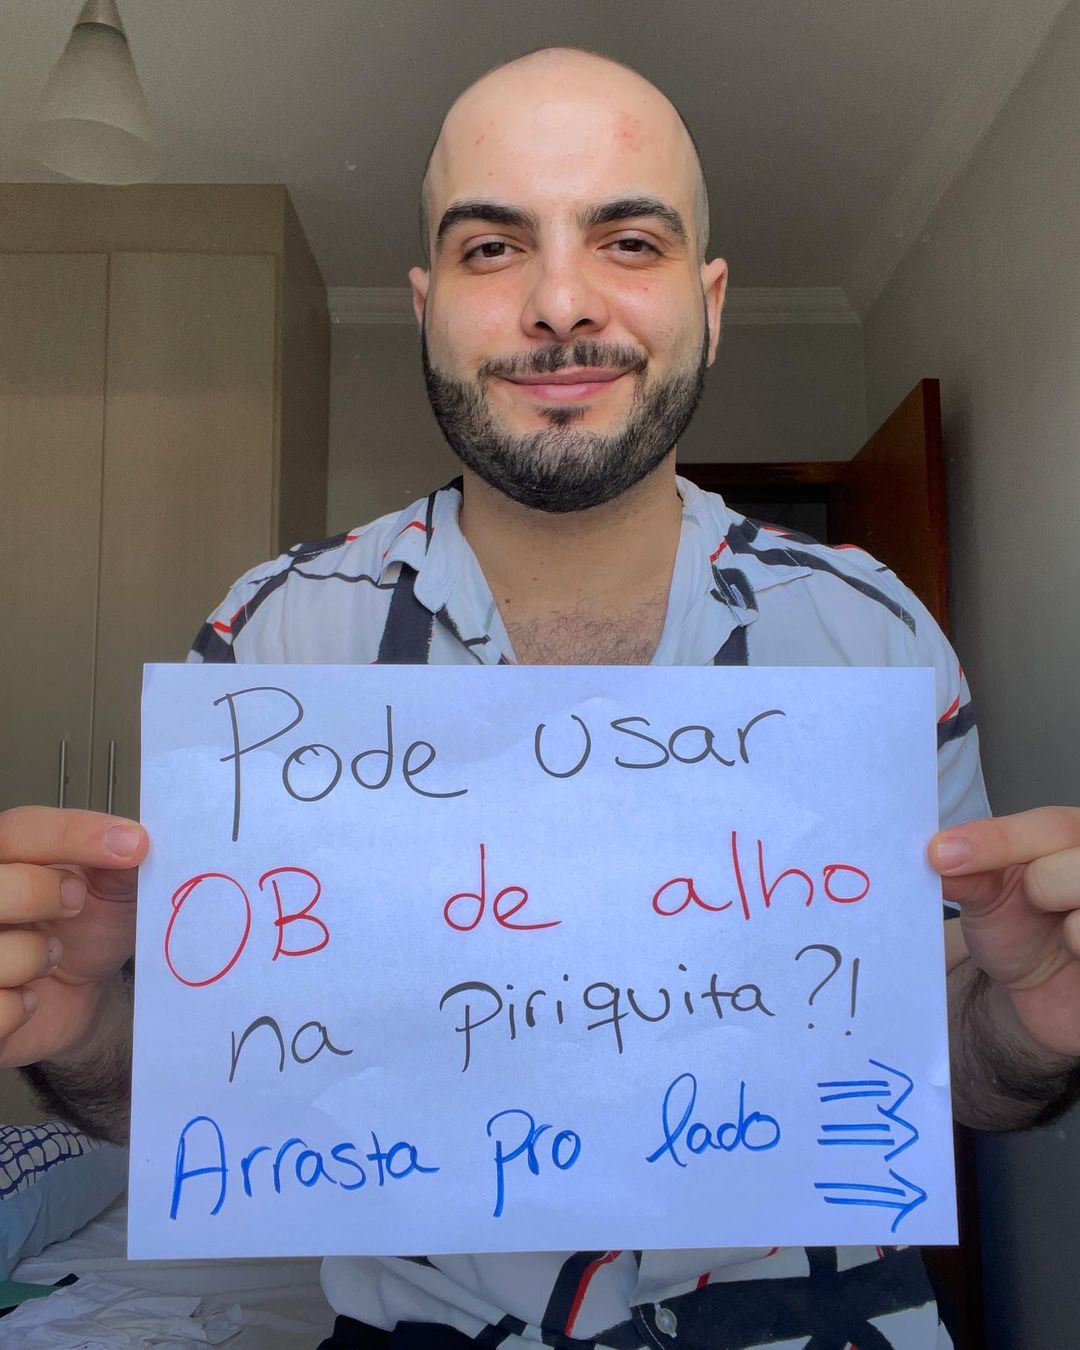 Pode usar
OB de alho
na piriquita?!
Arrasta pro lado